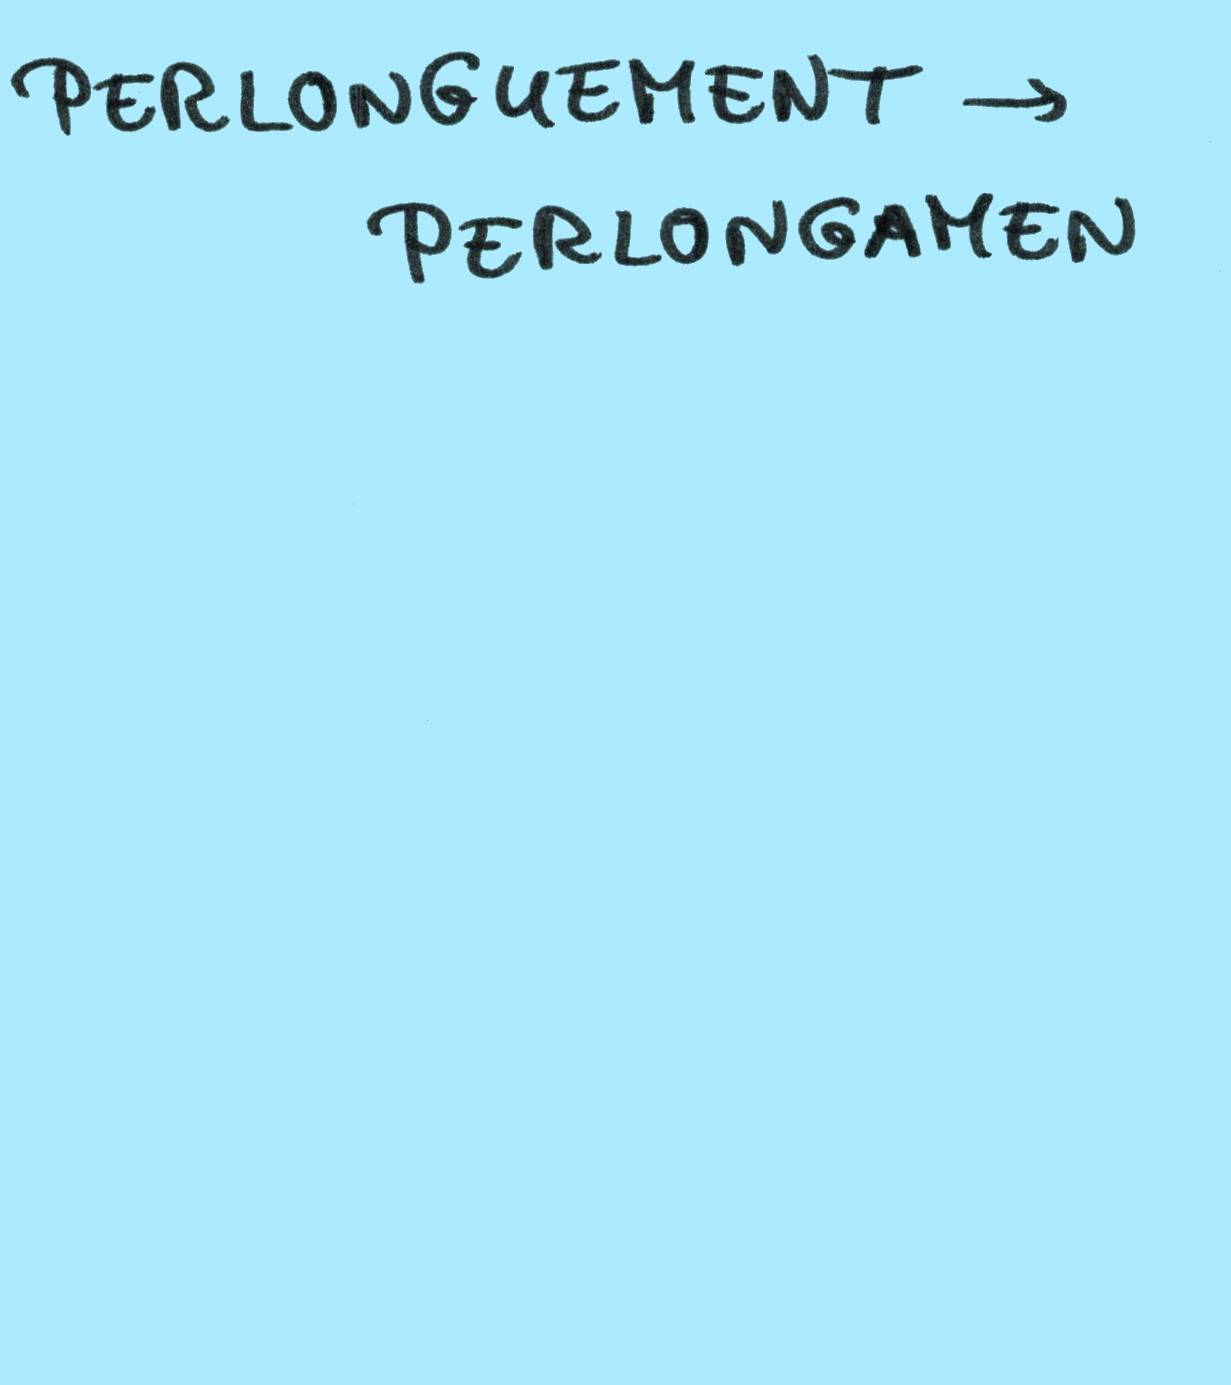 PERLONGUEMENT →
PERLONGAMEN